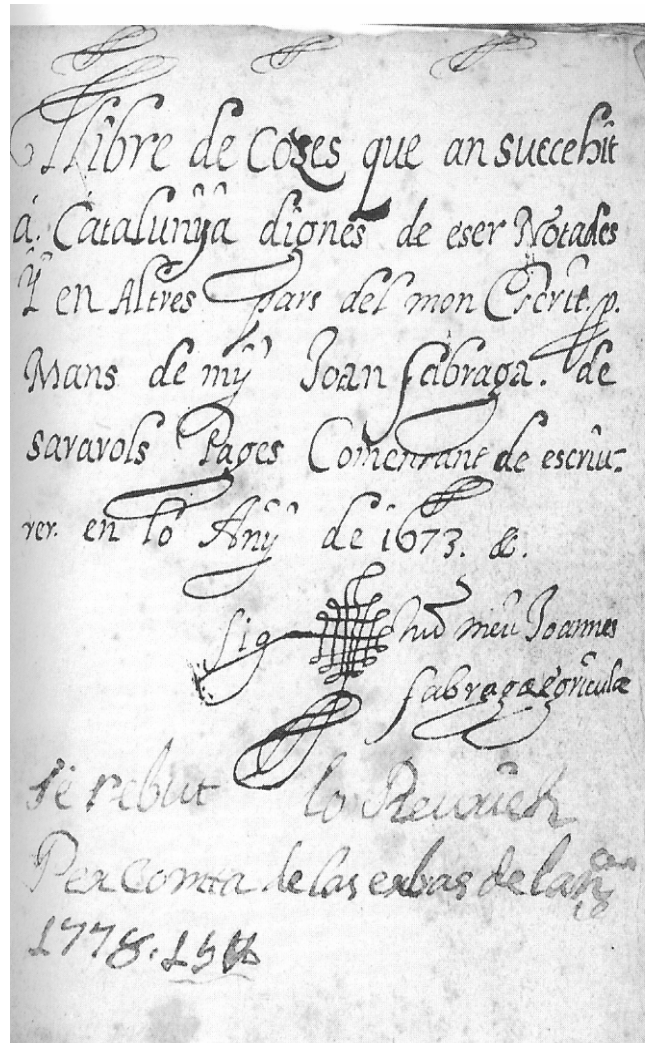 Llibre de Coses que an succehit
á. Catalunÿa dignes de eser Notades
ÿ en Altres pars del mon Escrit. p.
Mans de mÿ Joan fabraga. de
savarols Pages Comensant de escriu-
rer. en lo Anÿ de 1673. &.
Sig num meu Joannes
fabragæ Agriculæ
se rebut lo
Per Comta de las erbas de lan
1778.